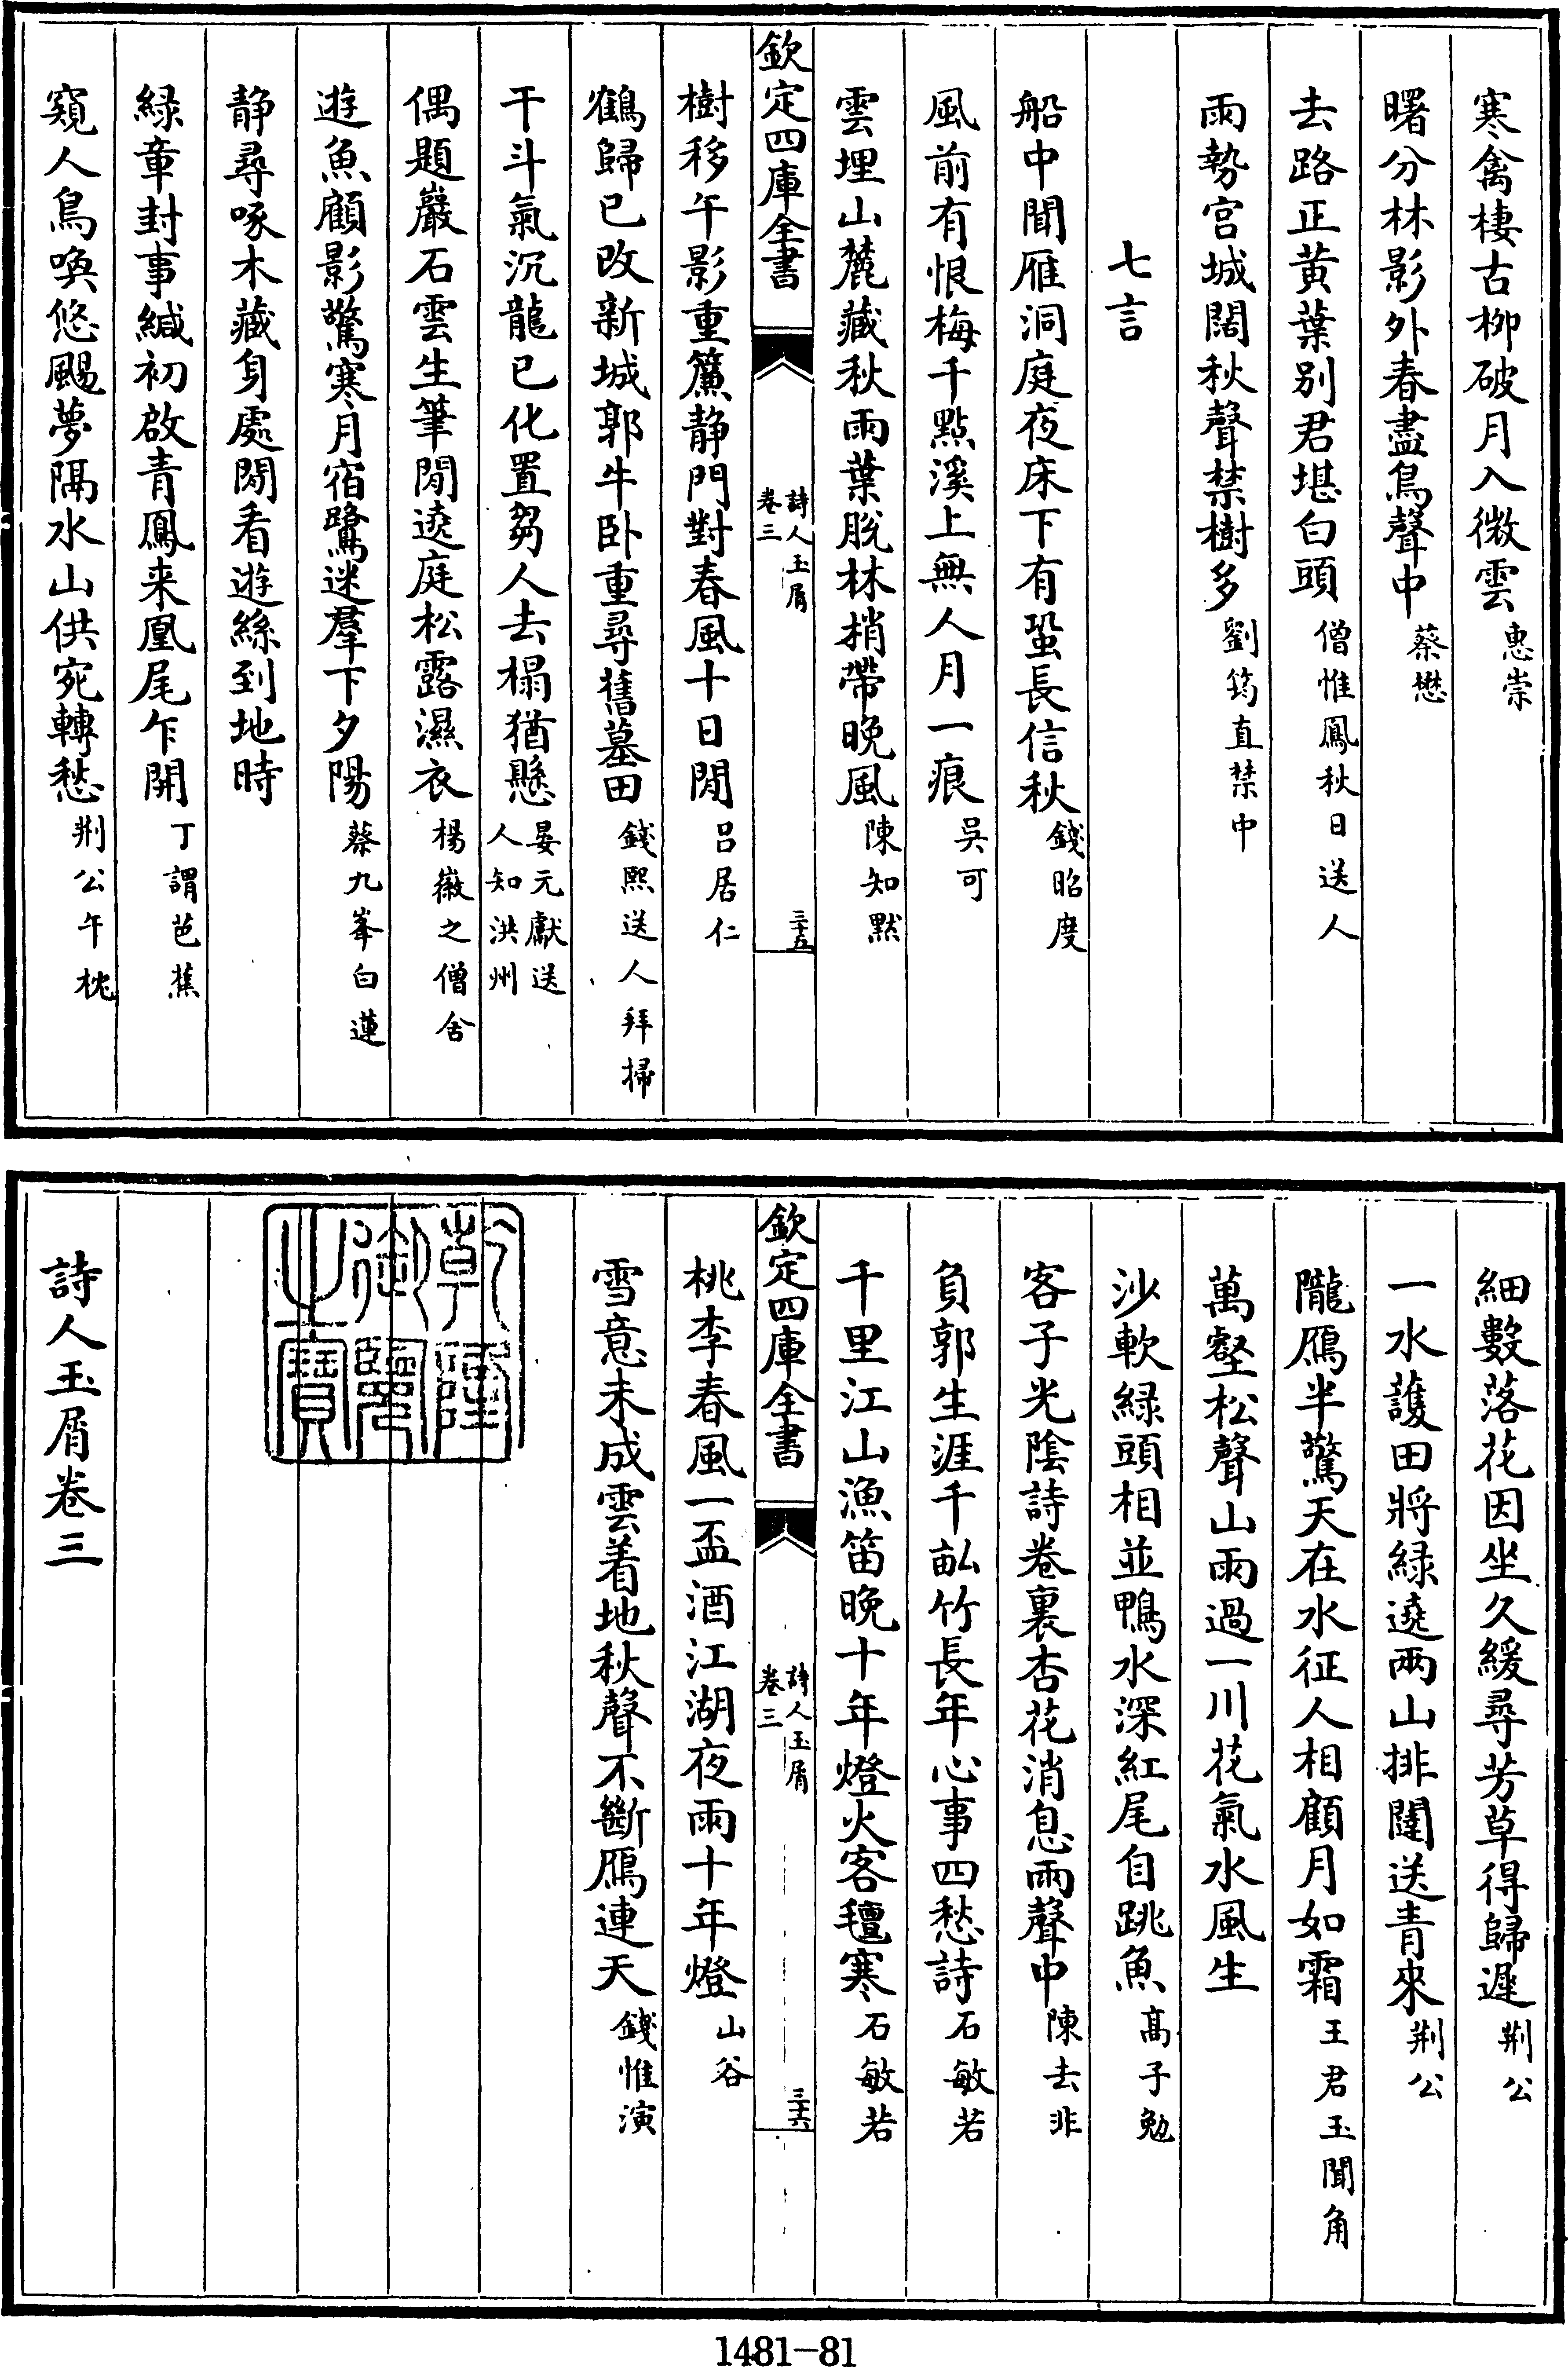 寒禽棲古栁破月入微雲惠崇
曙分林影外春盡鳥聲中蔡懋
去路正黄葉别君堪白頭僧惟鳳秋日送人
雨勢宫城闊秋聲禁樹多劉筠直禁中
七言
船中聞雁洞庭夜床下有蛩長信秋錢昭度
風前有恨梅千點溪上無人月一痕吳可
雲埋山麓藏秋雨葉脫林梢帶晚風陳知黙
欽定四庫全書
詩人玉屑
卷三
三十五
樹移午影重簾静門對春風十日閒吕居仁
鶴歸已改新城郭牛卧重尋舊墓田錢熙送人拜掃
干斗氣沉龍已化置芻人去榻猶懸晏元獻送人知洪州
偶題巖石雲生筆閒遶庭松露濕衣楊徽之僧舍
遊魚顧影驚寒月宿鷺迷羣下夕陽蔡九峯白蓮
静尋啄木藏身處閒看遊絲到地時
緑章封事緘初啟青鳳来凰尾乍開丁謂芭蕉
窺人鳥喚悠颺夢隔水山供宛轉愁荆公午枕
細數落花因坐久緩尋芳草得歸遲荆公
一水護田將緑遶兩山排闥送青來荆公
隴鴈半驚天在水征人相顧月如霜王君玉聞角
萬壑松聲山雨過一川花氣水風生
沙軟緑頭相並鴨水深紅尾自跳魚高子勉
客子光陰詩卷裏杏花消息雨聲中陳去非
負郭生涯千畝竹長年心事四愁詩石敏若
千里江山漁笛晚十年燈火客氊寒石敏若
欽定四庫全書
詩人玉屑
卷三
三十六
桃李春風一盃酒江湖夜雨十年燈山谷
雪意未成雲着地秋聲不斷鴈連天錢惟演
乾隆御覽之寶
詩人玉屑卷三
1481-81